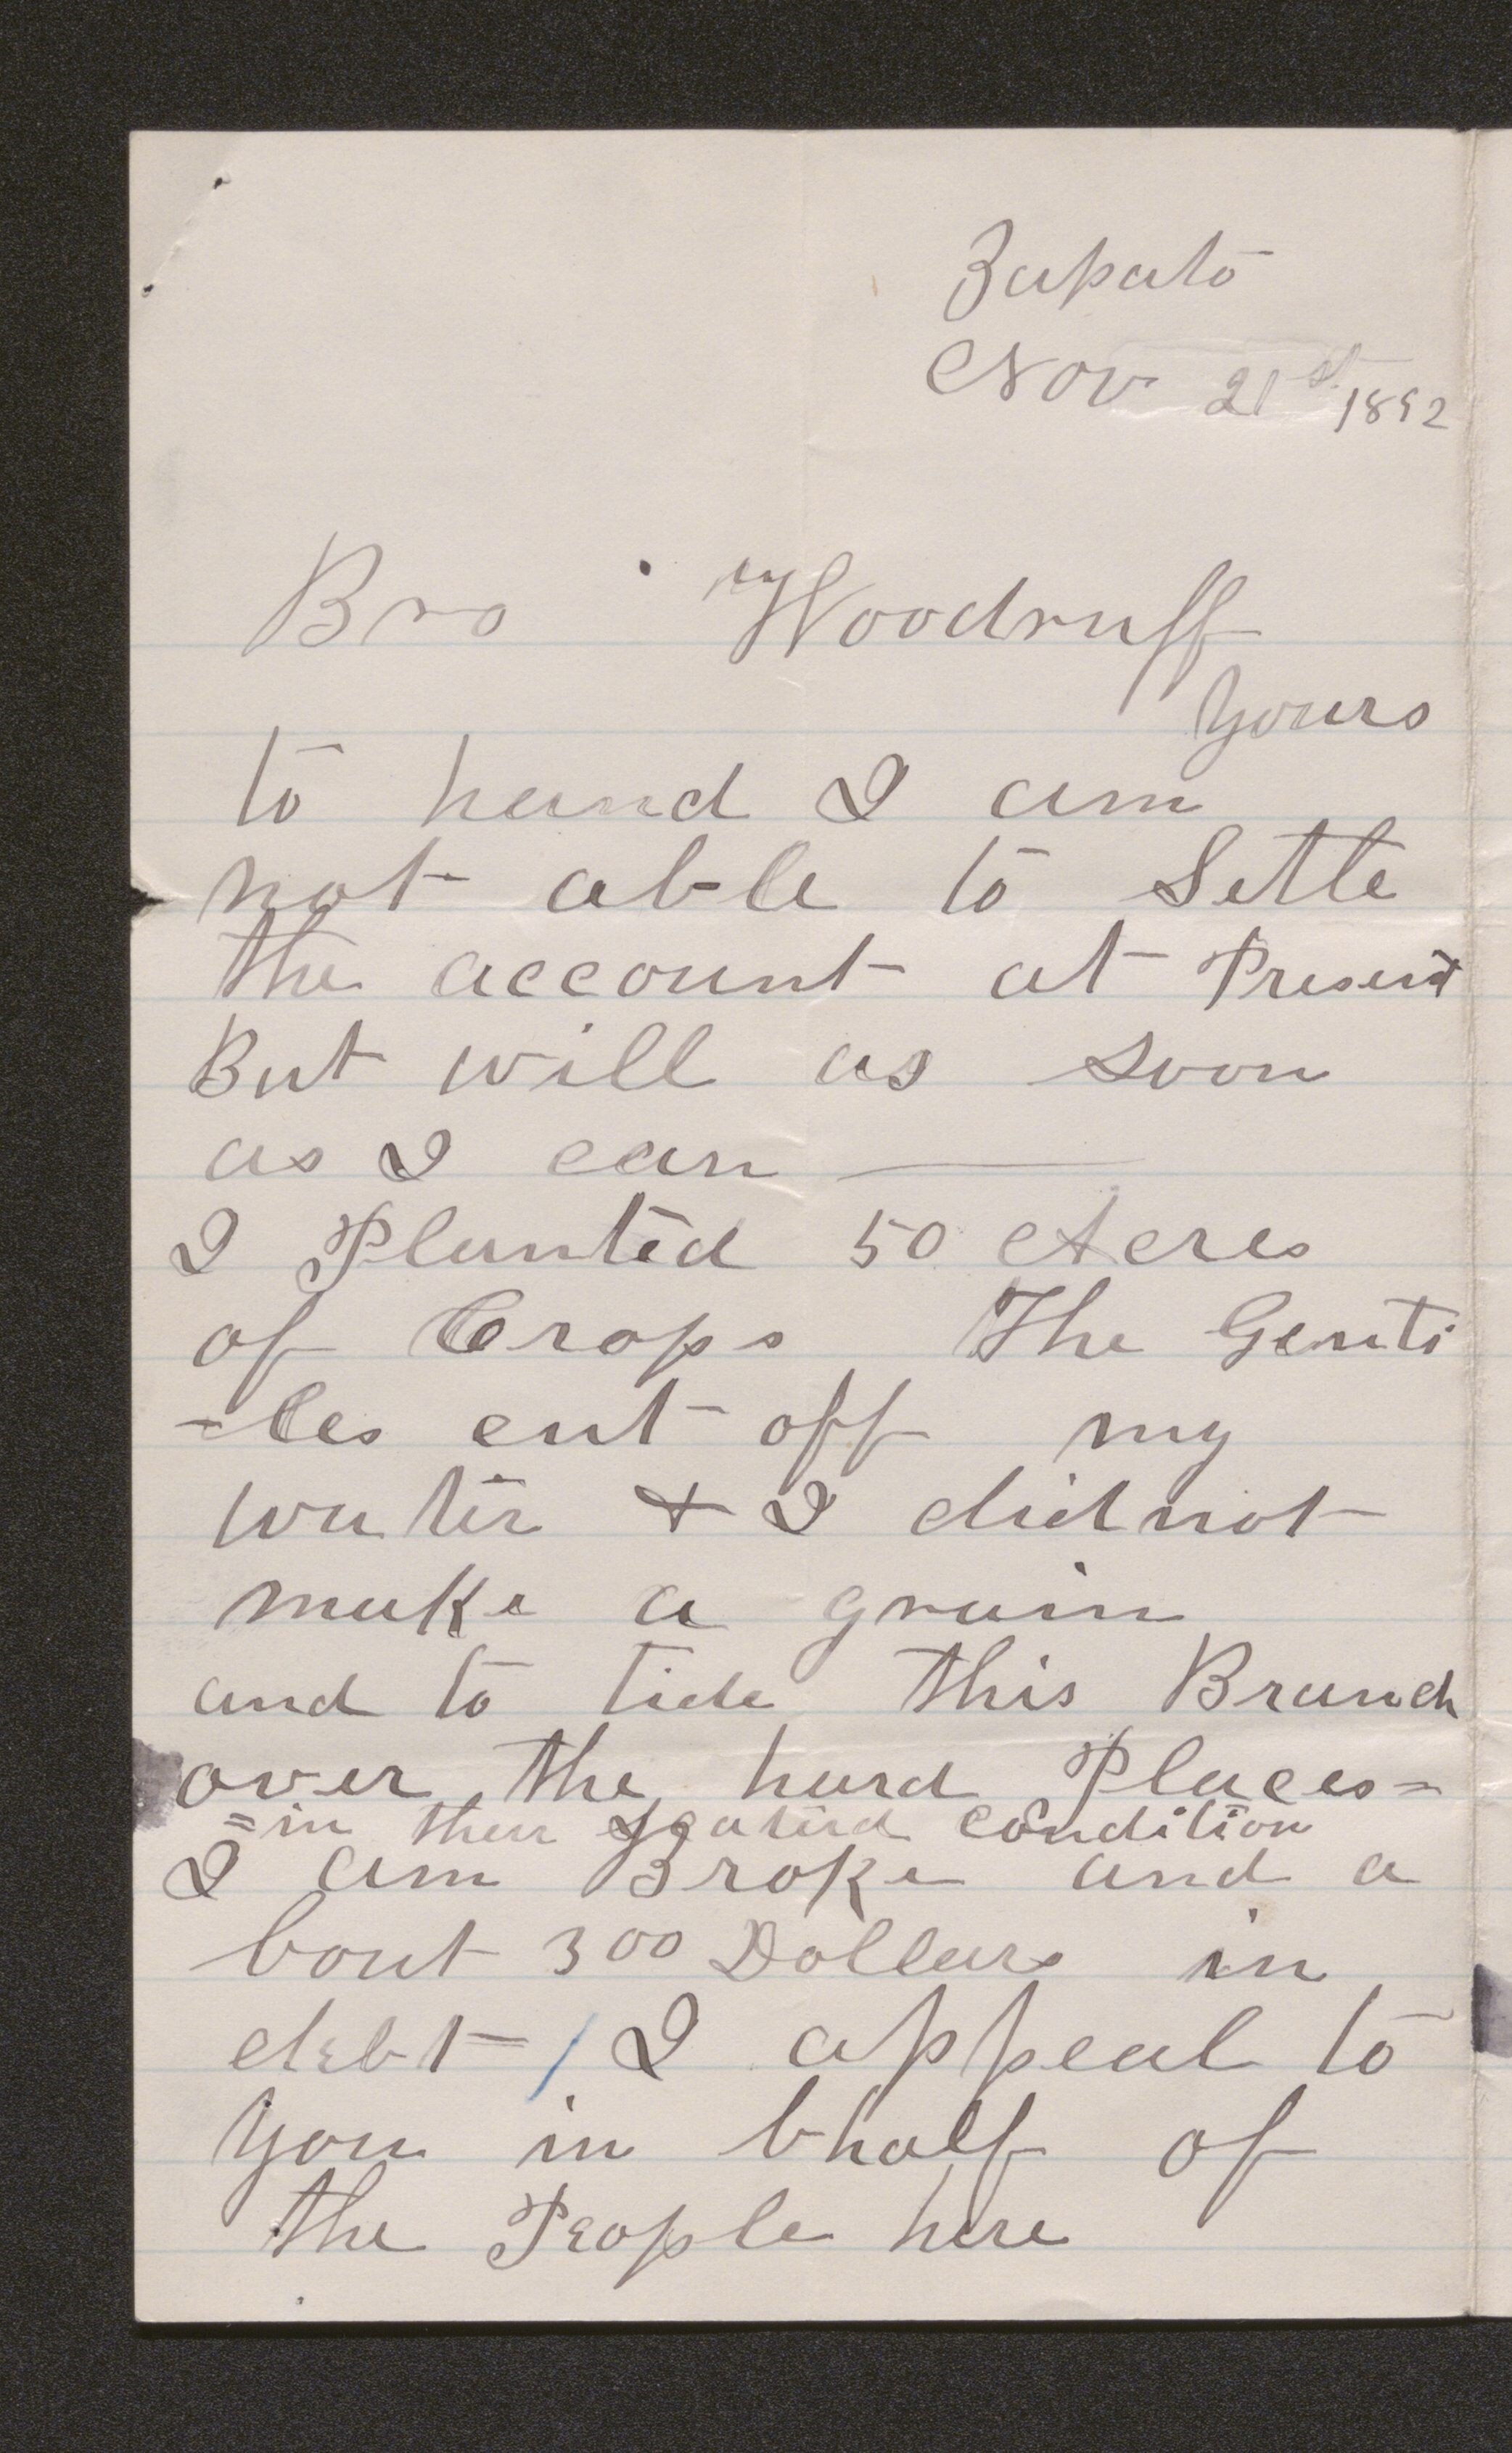 Zapato
Nov 21st 1892
Bro Woodruff
Yours
to hand I am
not able to Settle
the account at Present
But will as soon
as I can —
I Planted 50 Acres
of Crops The Genti
-les cut off my
water & I did not
make a grain
and to tide this Branch
over the hard Places=
=in their condition
I am Broke and a
bout 300 Dollars in
debt= / I appeal to
you in bhalf of
the People here